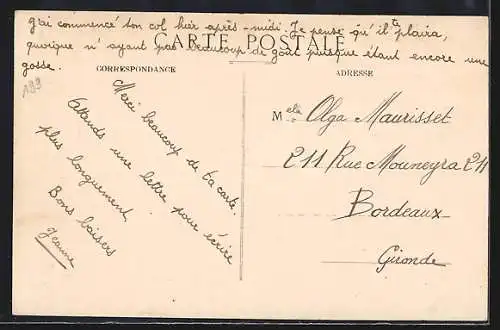 j'ai commencé ton col hier après-midi. Je pense qu'il te plaira,
CARTE POSTALE
quoique n'ayant pas beaucoup de goût puisque étant encore une
gosse.
CORRESPONDANCE
ADRESSE
199
Merci beaucoup de ta carte.
Attends une lettre pour écrire
plus longuement
Bons baisers
Jeanne
Melle Olga Maurisset
211 Rue Mouneyra 211
Bordeaux
Gironde